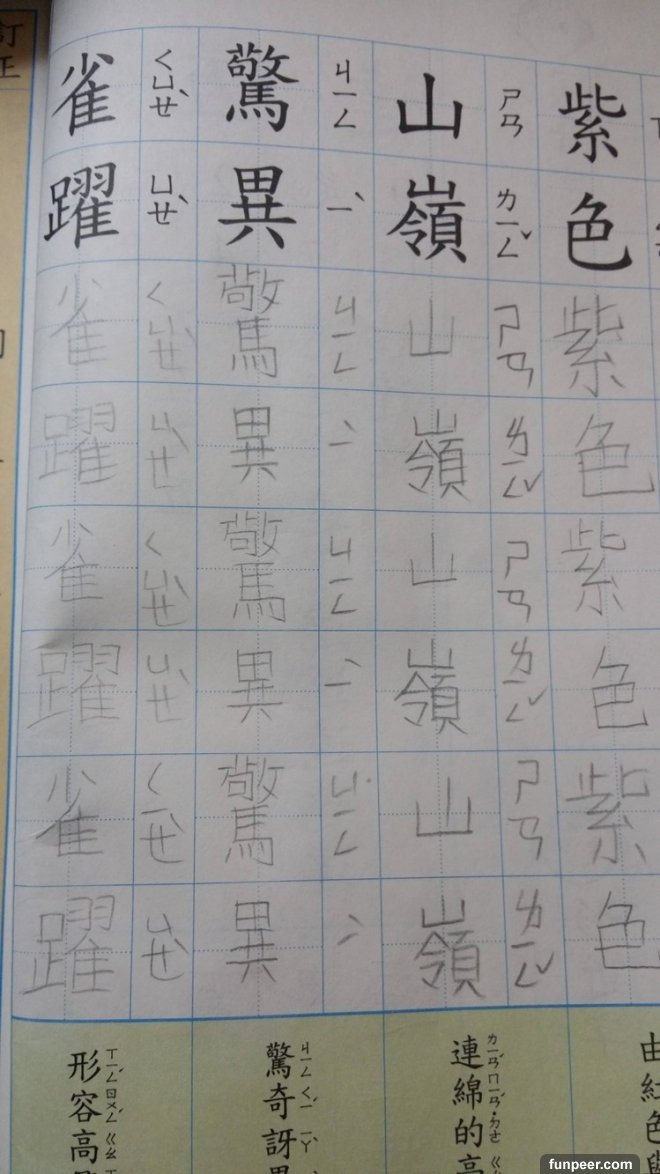 紫色紫色紫色紫色
山嶺山嶺山嶺山嶺
ㄕㄢ ㄌㄧㄥˇ ㄕㄢ ㄌㄧㄥˇ ㄕㄢ ㄌㄧㄥˇ ㄕㄢ ㄌㄧㄥˇ
驚異驚異驚異驚異
ㄐㄧㄥ ㄧˋ ㄐㄧㄥ ㄧˋ ㄐㄧㄥ ㄧˋ ㄐㄧㄥ ㄧˋ
雀躍雀躍雀躍雀躍
ㄑㄩㄝˋ ㄩㄝˋ ㄑㄩㄝˋ ㄩㄝˋ ㄑㄩㄝˋ ㄩㄝˋ ㄑㄧㄝˋ ㄩㄝˋ
由紅色
連綿的高
ㄌㄧㄢˊ ㄇㄧㄢˊ ˙ㄉㄜ ㄍㄠ
驚奇訝
ㄐㄧㄥ ㄑㄧˊ ㄧㄚˋ
形容高
ㄒㄧㄥˊ ㄖㄨㄥˊ ㄍㄠ
訂正
funpeer.com